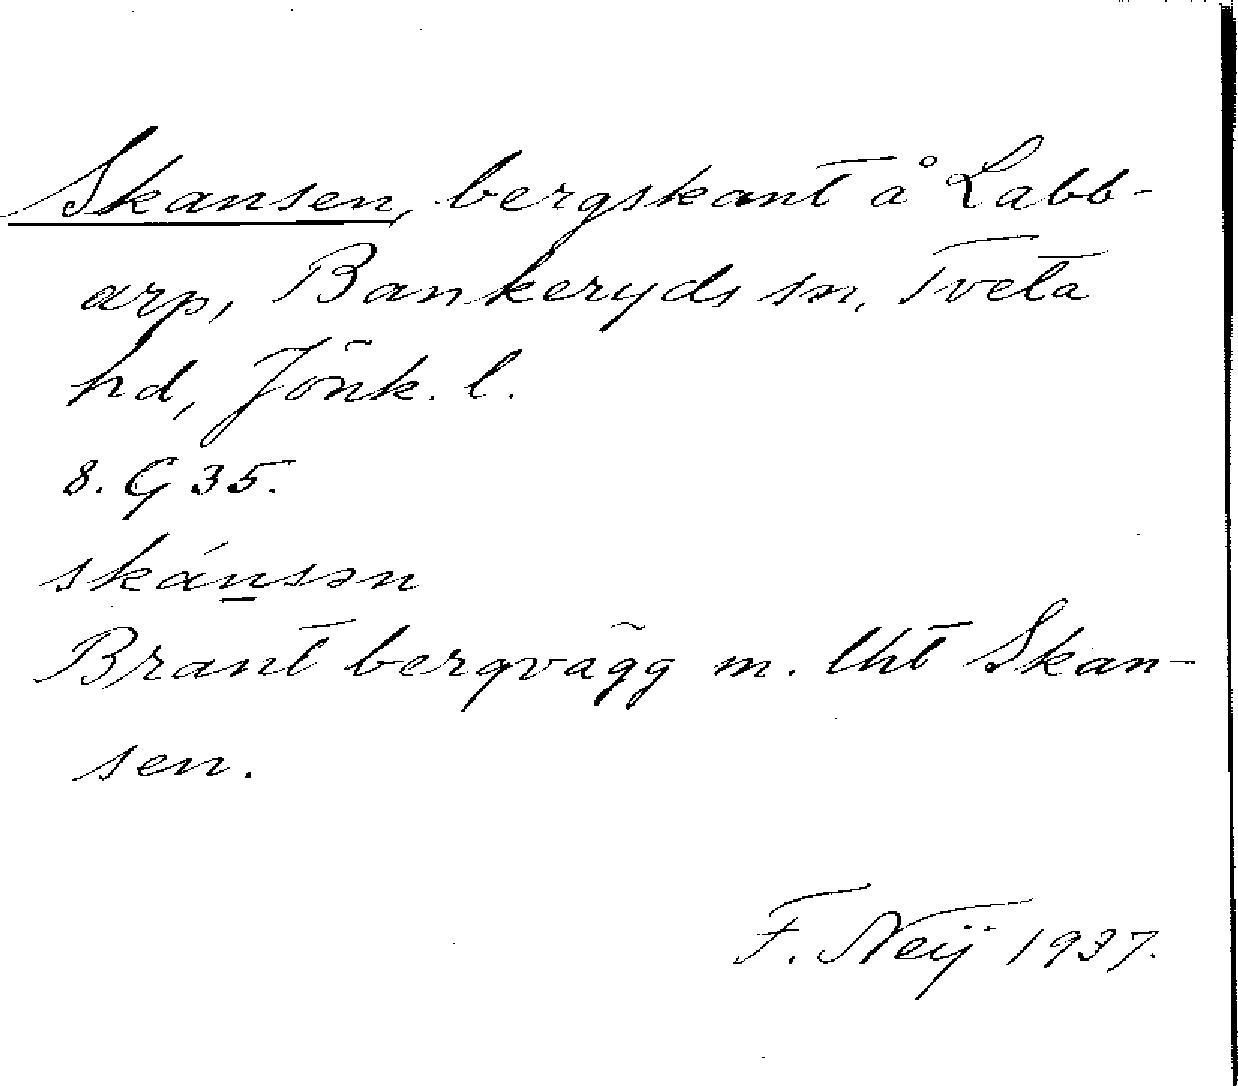 Skansen, bergskant å Labb-
arp, Bankeryds sn, Tveta
hd, Jönk. l.
8. G 35.
skánsən
Brant bergvägg m. tht Skan-
sen.
F. Neij 1937.